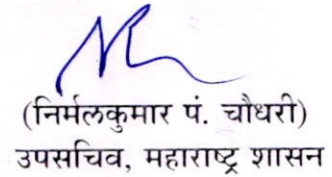 (निर्मलकुमार पं. चौधरी)
उपसचिव, महाराष्ट्र शासन